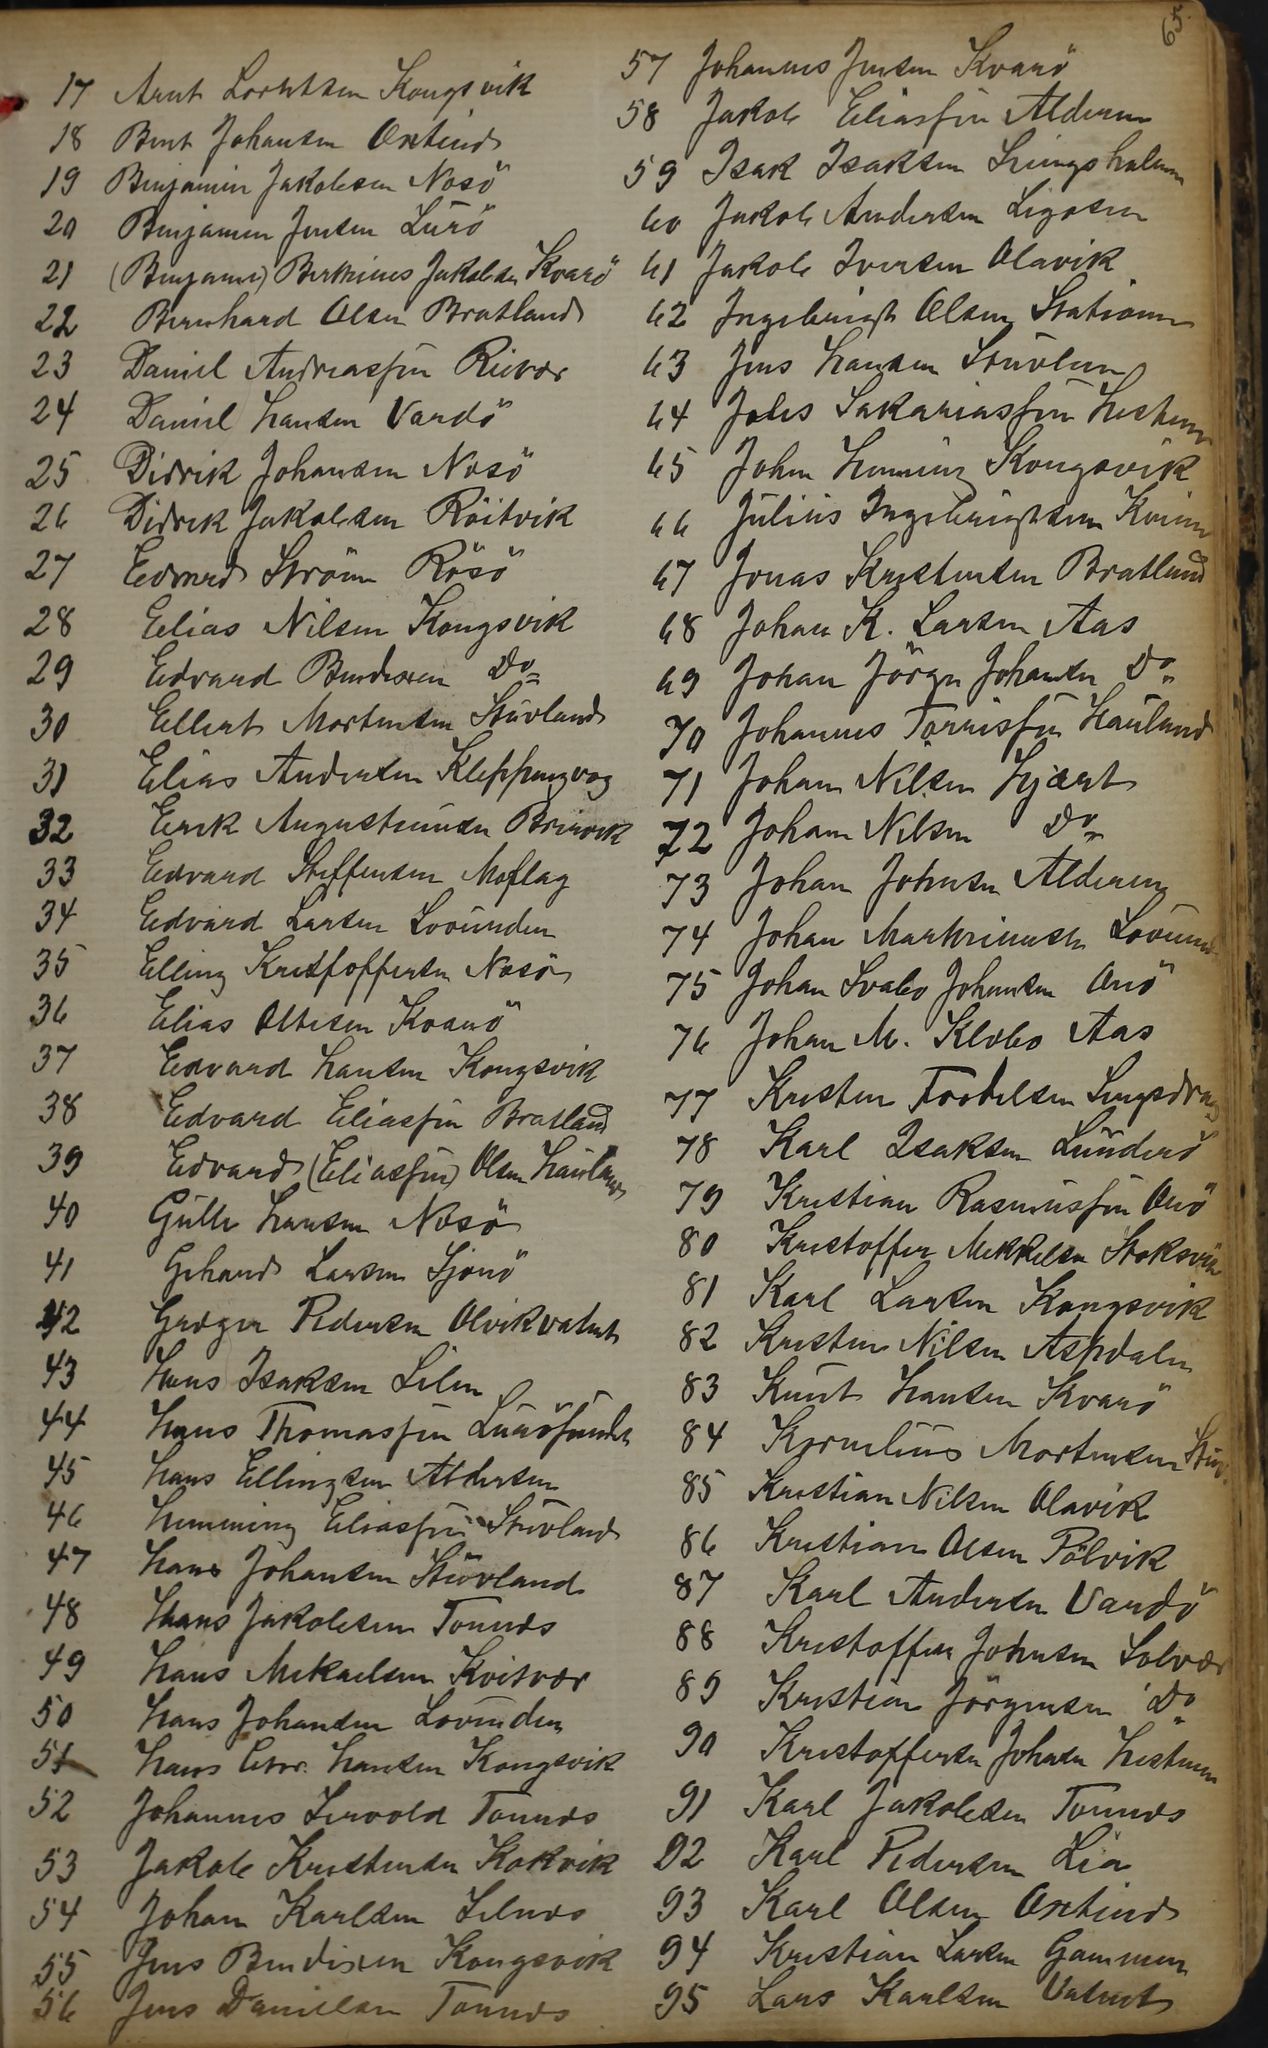 65
17 Arnt Lorentsen Kongsvik
18 Bernt Johansen Oxtind
19 Benjamin Jakobsen Nosö
20 Benjamin Jensen Lurö
21 (Benjamin) Berthinus Jakobsen Kvarö
22 Bernhard Olsen Bratland
23 Daniel Andreasfen Risvær
24 Daniel Hansen Vardö
25 Didrik Johansen Nosö
26 Didrik Jakobsen Röitvik
27 Edvard Ström Rösö
28 Elias Nilsen Kongsvik
29 Edvard Bendixen Do
30 Ellert Mortensen Stuvland
31 Elias Andersen Kleppingvåg
32 Erik Augustinusen
33 Edvard Steffensen Moflag
34 Edvard Larsen Lovunden
35 Elling Kristoffersen Nosö
36 Elias Ottesen Kvarö
37 Edvard Hansen Kongsvik
38 Edvard Eliasfen Bratland
39 Edvard (Eliasfen) Olsen Hauland
40 Gulle Hansen Nosö
41 Gerhard Larsen Sjonö
42 Gregor Pedersen Olvikvatnet
43 Hans Isaksen Silen
44 Hans Thomasfen Luröfundet
45 Hans Ellingsen Alderen
46 Hemming Eliasfen Stuvland
47 Hans Johansen Stuvland
48 Hans Jakobsen Tonnes
49 Hans Mikaelsen Kvitvær
50 Hans Johansen Lovunden
51 Hans Chr. Hansen Kongsvik
52 Johannes Servold Tonnes
53 Jakob Kristensen Kokvik
54 Johan Karlsen Selnes
55 Jens Bendixen Kongsvik
56 Jens Danielsen Tonnes
57 Johannes Jensen Kvarö
58 Jakob Eliasfen Alderen
59 Isak Isaksen Lyngsholmen
60 Jakob Andersen Ligosen
61 Jakob Iversen Olavik
62 Ingebrigt Olsen Stationen
63 Jens Hansen Stuvland
64 Johs Sakariasfen Hestmn
65 John Henning Kongsvik
66 Julius Ingebrigtsen
67 Jonas Kristensen Bratland
68 Johan K. Larsen Aas
69 Johan Jörgen Johansen Do
70 Johannes Torrisfen Hauland
71 Johan Nilsen Hjart
72 Johan Nilsen Do
73 Johan Johnsen Alderen
74 Johan Marthinusen Lovund
75 Johan Svabo Johansen Onö
76 Johan M. Klobo Aas
77 Kristen Tostelsen
78 Karl Isaksen Lunderö
79 Kristian Rasmusfen Onö
80 Kristoffer Mikkelsen Stoksvik
81 Karl Larsen Kongsvik
82 Kristen Nilsen Aspdalen
83 Knut Hansen Kvarö
84 Kornelius Mortensen Stuv.
85 Kristian Nilsen Olavik
86 Kristian Olsen Pölvik
87 Karl Andersen Vardö
88 Kristoffer Johnsen Solvær
89 Kristian Jörgensen Do
90 Kristoffersen Johan Hestmn
91 Karl Jakobsen Tonnes
92 Karl Pedersen Lia
93 Karl Olsen Oxtind
94 Kristian Larsen Gammen
95 Lars Karlsen Vatnet